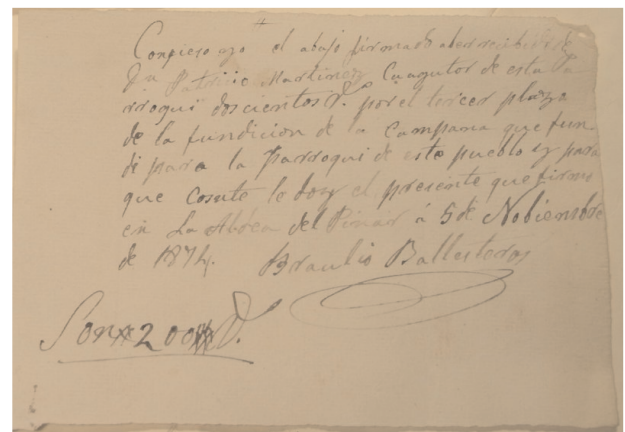 Confieso yo el abajo firmado aber recibido de
Dn Patricio Martinez Cuagutor de esta Pa
rroqui doscientos r.s por el tercer plazo
de la fundicion de a Campana que fun
di para la Parroqui de este pueblo y para
que Coste le doy el presente que firmo
en La Abóea del Pinar á 5 de Nobienbre
de 1874. Braulio Ballesteros
Son # 200 # r.s